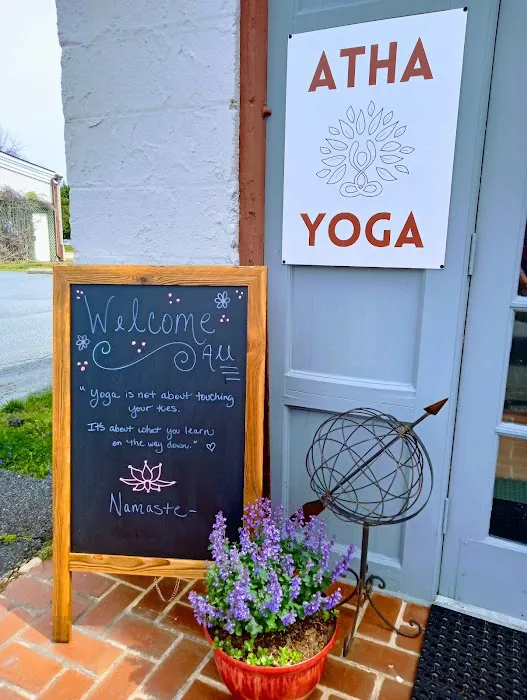 ATHA
YOGA
Welcome
All
"Yoga is not about touching
your toes.
It's about what you learn
on the way down."
Namaste-